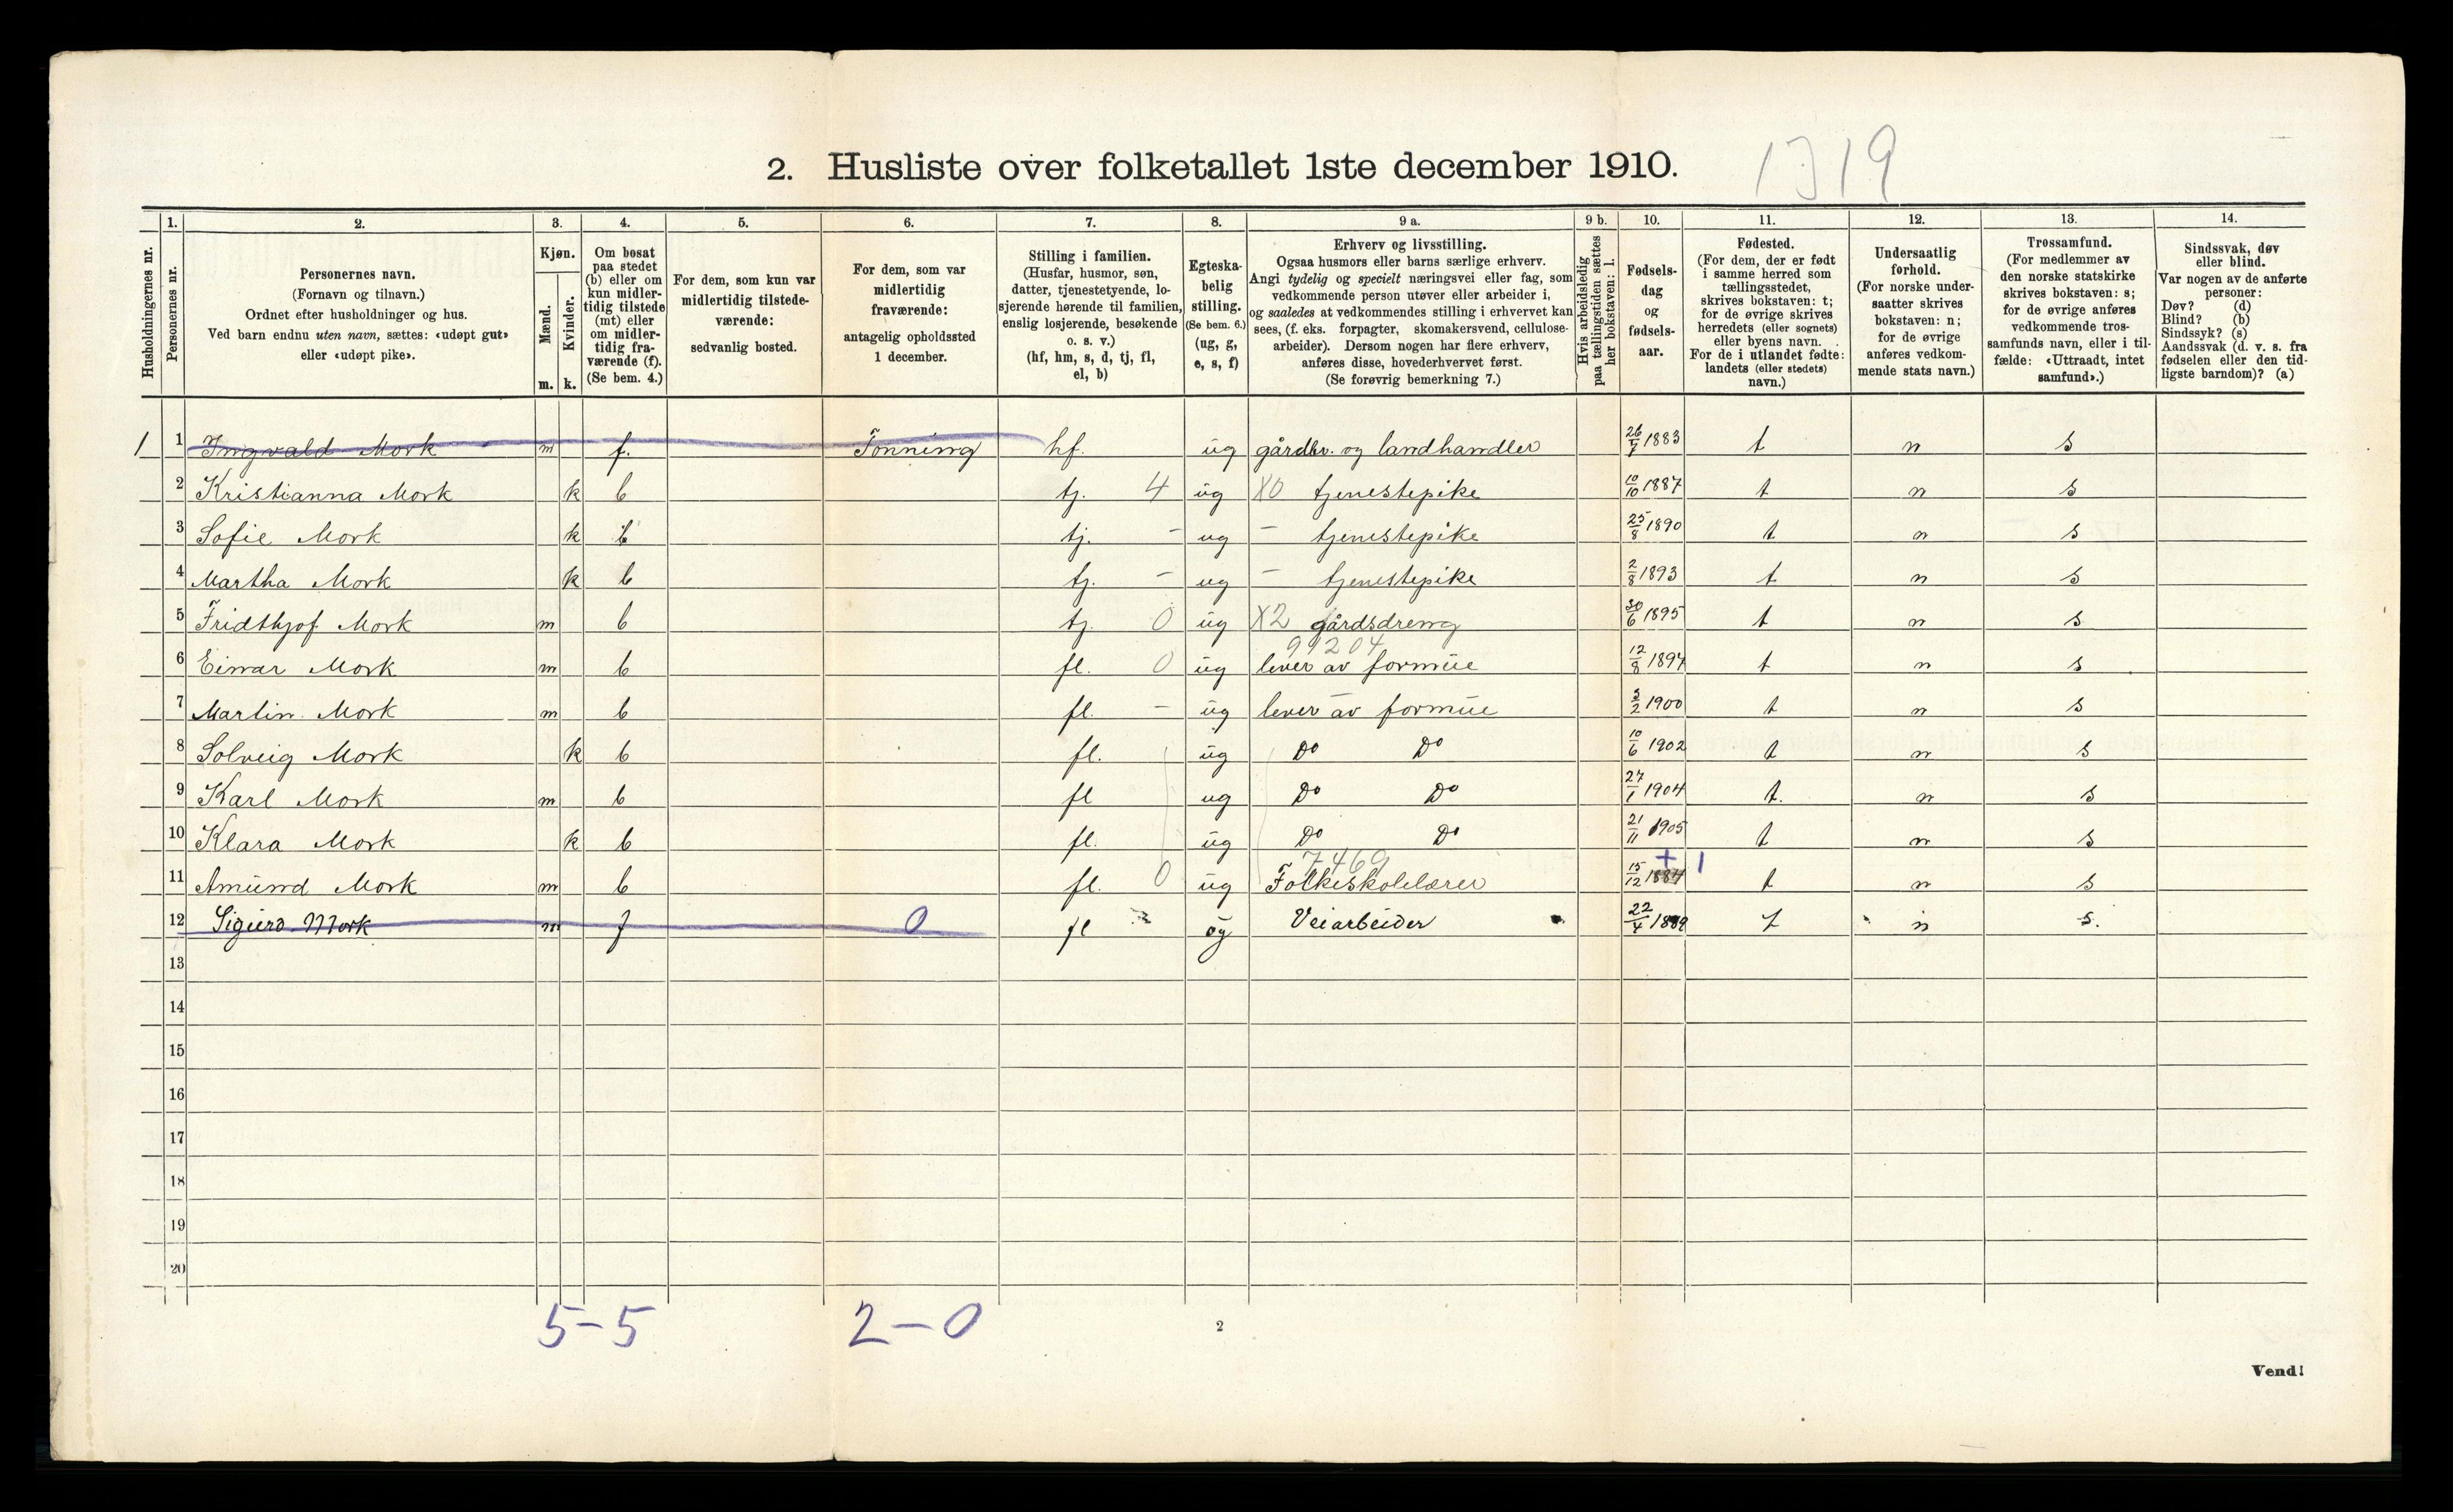 2. Husliste over folketallet 1ste december 1910. 1319
Husholdningernes nr.
1. Personernes nr.
2. Personernes navn.
(Fornavn og tilnavn.)
Ordnet efter husholdninger og hus.
Ved barn endnu uten navn, sættes: «udøpt gut»
eller «udøpt pike».
3. Kjøn.
Mænd. Kvinder.
m. k.
4. Om bosat
paa stedet
(b) eller om
kun midler-
tidig tilstede
(mt) eller
om midler-
tidig fra-
værende (f).
(Se bem. 4.)
5. For dem, som kun var
midlertidig tilstede-
værende:
sedvanlig bosted.
6. For dem, som var
midlertidig
fraværende:
antagelig opholdssted
1 december.
7. Stilling i familien.
(Husfar, husmor, søn,
datter, tjenestetyende, lo-
sjerende hørende til familien,
enslig losjerende, besøkende
o. s. v.)
(hf, hm, s, d, tj, fl,
el, b)
8. Egteska-
belig
stilling.
(Se bem. 6.)
(ug, g,
e, s, f)
9 a. Erhverv og livsstilling.
Ogsaa husmors eller barns særlige erhverv.
Angi tydelig og specielt næringsvei eller fag, som
vedkommende person utøver eller arbeider i,
og saaledes at vedkommendes stilling i erhvervet kan
sees, (f. eks. forpagter, skomakersvend, cellulose-
arbeider). Dersom nogen har flere erhverv,
anføres disse, hovederhvervet først.
(Se forøvrig bemerkning 7.)
9 b. Hvis arbeidsledig
paa tællingstiden sættes
her bokstaven: l.
10. Fødsels-
dag
og
fødsels-
aar.
11. Fødested.
(For dem, der er født
i samme herred som
tællingsstedet,
skrives bokstaven: t;
for de øvrige skrives
herredets (eller sognets)
eller byens navn.
For de i utlandet fødte:
landets (eller stedets)
navn.)
12. Undersaatlig
forhold.
(For norske under-
saatter skrives
bokstaven: n;
for de øvrige
anføres vedkom-
mende stats navn.)
13. Trossamfund.
(For medlemmer av
den norske statskirke
skrives bokstaven: s;
for de øvrige anføres
vedkommende tros-
samfunds navn, eller i til-
fælde: «Uttraadt, intet
samfund».)
14. Sindssvak, døv
eller blind.
Var nogen av de anførte
personer:
Døv? (d)
Blind? (b)
Sindssyk? (s)
Aandssvak (d. v. s. fra
fødselen eller den tid-
ligste barndom)? (a)
1 1 Ingvald Mork m f. Tønning hf. ug gårdbr. og landhandler 26/7 1883 t n s
2 Kristianna Mork k b tj. 4 ug X0 tjenestepike 10/10 1887 t n s
3 Sofie Mork k b tj. - ug - tjenestepike 25/8 1890 t n s
4 Martha Mork k b tj. - ug - tjenestepike 2/8 1893 t n s
5 Fridthjof Mork m b tj. 0 ug X2 gårdsdreng 30/6 1895 t n s
91204
6 Einar Mork m b fl. 0 ug lever av formue 12/8 1897 t n s
7 Martin Mork m b fl. - ug lever av formue 3/2 1900 t n s
8 Solveig Mork k b fl. ug Do Do 10/6 1902 t n s
9 Karl Mork m b fl ug Do Do 27/1 1904 t. n s
10 Klara Mork k b fl. ug Do Do 21/11 1905 t n s
7469 + 1
11 Amund Mork m b fl. 0 ug Folkeskolelærer 15/12 1884 t n s
12 Sigurd Mork m f 0 fl ug Veiarbeider 22/4 1889 t n s.
13
14
15
16
17
18
19
20
5-5 2-0
2
Vend!